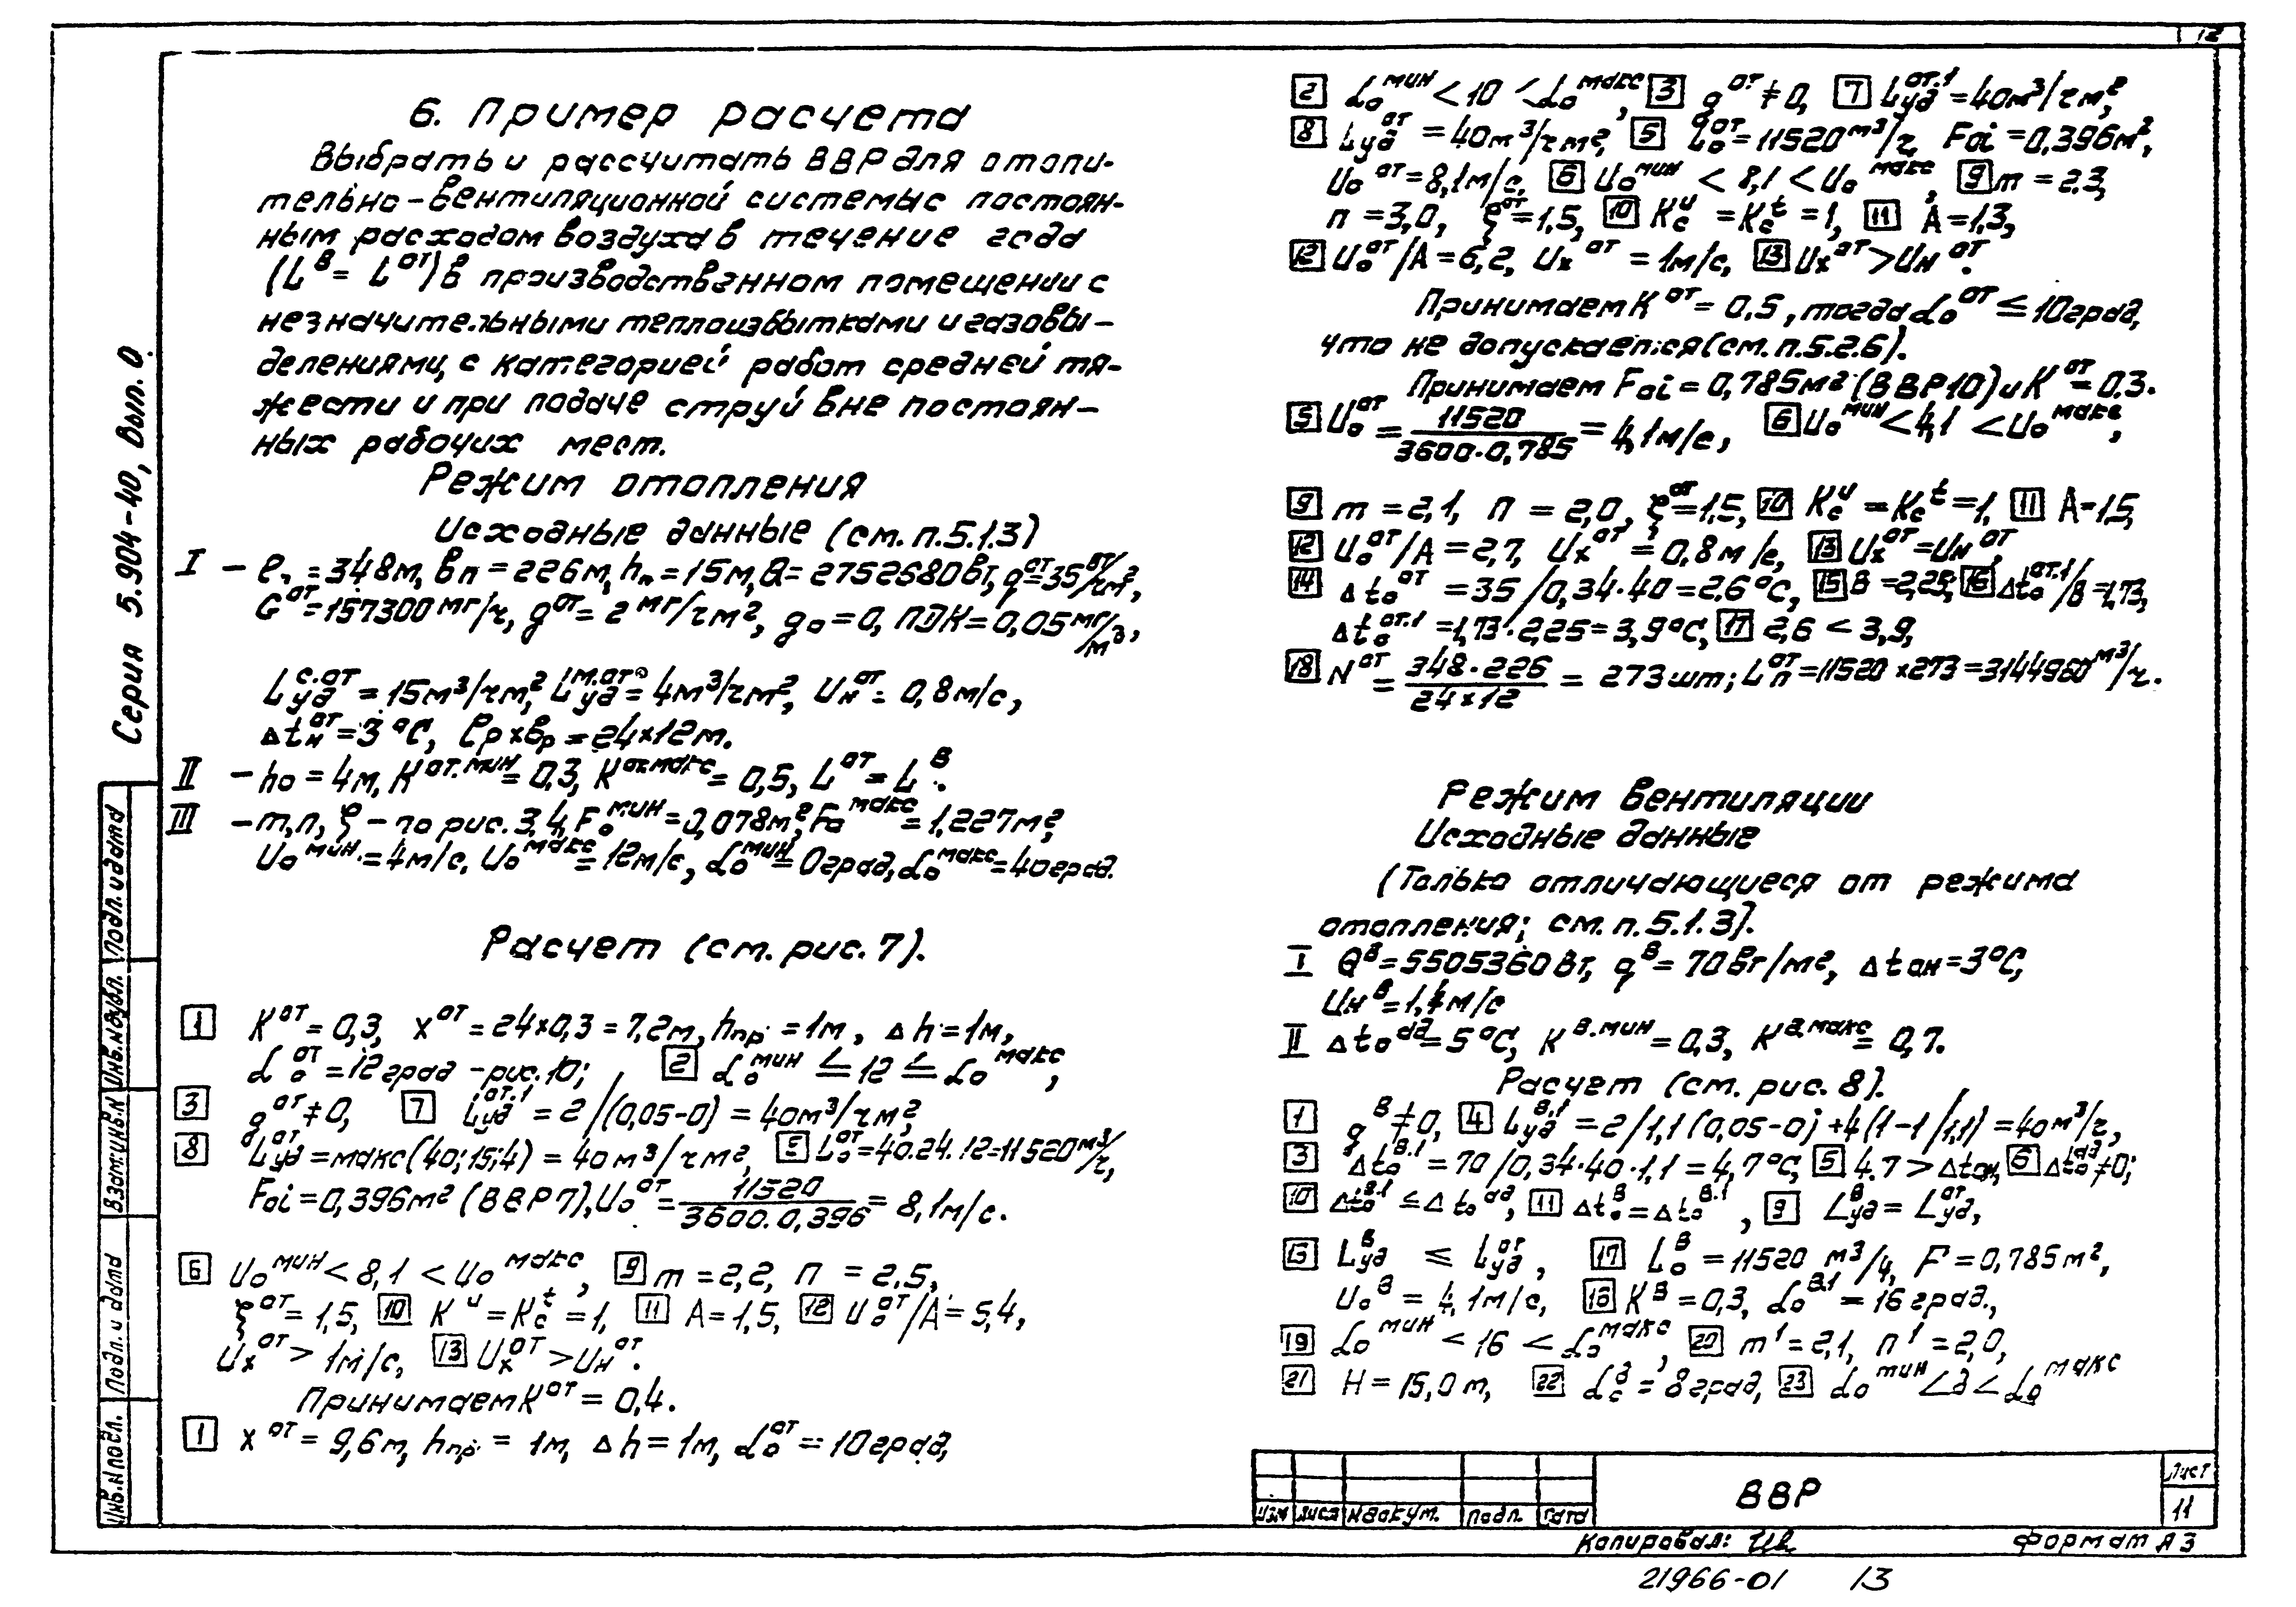 12
6. Пример расчета
Выбрать и рассчитать ВВР для отопи-
тельно-вентиляционной системы с постоян-
ным расходом воздуха в течение года
(Lᴮ = Lᵒᵀ) в производственном помещении с
незначительными теплоизбытками и газовы-
делениями, с категорией работ средней тя-
жести и при подаче струй вне постоян-
ных рабочих мест.
Режим отопления
Исходные данные (см. п. 5.1.3)
I – ℓп = 348м, вп = 226м, hп = 15м, Q = 2752680Вт, qᵒᵀ = 35 Вт/м²,
Gᵒᵀ = 157300 мг/ч, gᵒᵀ = 2 мг/чм², g₀ = 0, ПДК = 0,05 мг/м³,
Lуд^с.от = 15м³/чм², Lуд^м.от = 4м³/чм², Uнᵒᵀ = 0,8м/с,
Δtнᵒᵀ = 3°С, ℓр×вр = 24×12м.
II – h₀ = 4м, К^от.мин = 0,3, К^от.макс = 0,5, Lᵒᵀ = Lᴮ.
III – m, n, ξ – по рис. 3,4, F₀^мин = 0,078м², F₀^макс = 1,227м²,
U₀^мин. = 4м/с, U₀^макс = 12м/с, α₀^мин = 0град, α₀^макс = 40град.
Расчет (см. рис. 7).
1 Кᵒᵀ = 0,3, xᵒᵀ = 24×0,3 = 7,2м, hпр = 1м, Δh = 1м,
α₀ᵒᵀ = 12град – рис. 10; 2 α₀^мин ≤ 12 ≤ α₀^макс,
3 gᵒᵀ ≠ 0, 7 Lуд^от.1 = 2/(0,05-0) = 40м³/чм²,
8 Lудᵒᵀ = макс(40;15;4) = 40м³/чм², 5 L₀ᵒᵀ = 40.24.12 = 11520м³/ч,
F₀i = 0,396м² (ВВР7), U₀ᵒᵀ = 11520/3600.0,396 = 8,1м/с.
6 U₀^мин < 8,1 < U₀^макс, 9 m = 2,2, n = 2.5,
ξᵒᵀ = 1,5, 10 Kсᵘ = Kсᵗ = 1, 11 А = 1,5, 12 U₀ᵒᵀ/А = 5,4,
Uxᵒᵀ > 1м/с, 13 Uxᵒᵀ > Uнᵒᵀ.
Принимаем Кᵒᵀ = 0,4.
1 xᵒᵀ = 9,6м, hпр. = 1м, Δh = 1м, α₀ᵒᵀ = 10град,
2 α₀^мин < 10 < α₀^макс, 3 gᵒᵀ ≠ 0, 7 Lуд^от.1 = 40м³/чм²,
8 Lудᵒᵀ = 40м³/чм², 5 L₀ᵒᵀ = 11520м³/ч, F₀i = 0,396м²,
U₀ᵒᵀ = 8,1м/с, 6 U₀^мин < 8,1 < U₀^макс, 9 m = 2,3,
n = 3,0, ξᵒᵀ = 1,5, 10 Kсᵘ = Kсᵗ = 1, 11 А = 1,3,
12 U₀ᵒᵀ/А = 6,2, Uxᵒᵀ = 1м/с, 13 Uxᵒᵀ > Uнᵒᵀ.
Принимаем Кᵒᵀ = 0,5, тогда α₀ᵒᵀ ≤ 10град,
что не допускается (см. п. 5.2.6).
Принимаем F₀i = 0,785м² (ВВР10) и Кᵒᵀ = 0,3.
5 U₀ᵒᵀ = 11520/3600·0,785 = 4,1м/с, 6 U₀^мин < 4,1 < U₀^макс,
9 m = 2,1, n = 2,0, ξᵒᵀ = 1,5, 10 Kсᵘ = Kсᵗ = 1, 11 А = 1,5,
12 U₀ᵒᵀ/А = 2,7, Uxᵒᵀ = 0,8м/с, 13 Uxᵒᵀ = Uнᵒᵀ,
14 Δt₀ᵒᵀ = 35/0,34·40 = 2,6°С, 15 В = 2,25; 16 Δt₀^от.1/В = 1,73,
Δt₀^от.1 = 1,73·2,225 = 3,9°С, 17 2,6 < 3,9,
18 Nᵒᵀ = 348·226/24×12 = 273шт; Lпᵒᵀ = 11520×273 = 3144960 м³/ч.
Режим вентиляции
Исходные данные
(Только отличающиеся от режима
отопления; см. п. 5.1.3).
I Qᴮ = 5505360Вт, qᴮ = 70Вт/м², Δtан = 3°С,
Uнᴮ = 1, м/с
II Δt₀^ад = 5°С, К^в.мин = 0,3, К^в.макс = 0,7.
Расчет (см. рис. 8).
1 gᴮ ≠ 0, 4 Lуд^в.1 = 2/1,1(0,05-0)+4(1-1/1,1) = 40м³/ч,
3 Δt₀^в.1 = 70/0,34·40·1,1 = 4,7°С, 5 4.7 > Δtан, 6 Δt₀^ад ≠ 0;
10 Δt₀^в.1 ≤ Δt₀^ад, 11 Δt₀ᴮ = Δt₀^в.1, 9 Lудᴮ = Lудᵒᵀ,
15 Lудᴮ ≤ Lудᵒᵀ, 17 L₀ᴮ = 11520 м³/ч, F = 0,785м²,
U₀ᴮ = 4,1м/с, 18 Kᴮ = 0,3, α₀^в.1 = 16град.,
19 α₀^мин < 16 < α₀^макс, 20 m¹ = 2,1, n¹ = 2,0,
21 Н = 15,0м, 22 αс = 8град, 23 α₀^мин < 8 < α₀^макс
Серия 5.904-40, Вып. 0.
Инв.№подл. Подп. и дата Взам.инв.№ Инв.№дубл. Подп. и дата
Изм Лист №докум. Подп. Дата
ВВР
Лист
11
Копировал:
Формат А3
21966-01 13